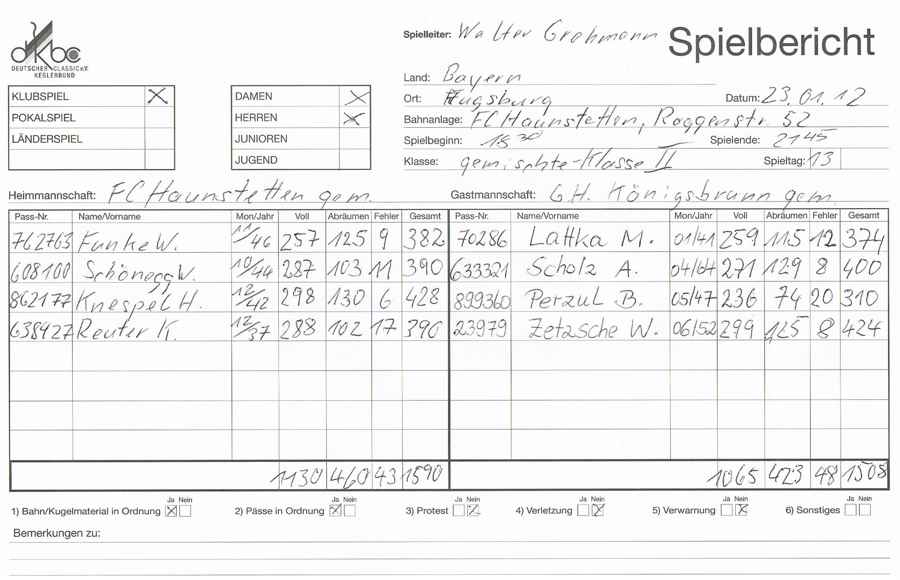 Spielleiter: Walter Grohmann Spielbericht
dkbc
DEUTSCHER CLASSICKEGLERBUND
Land: Bayern
Ort: Augsburg Datum: 23.01.12
KLUBSPIEL X DAMEN X
POKALSPIEL HERREN X
LÄNDERSPIEL JUNIOREN
JUGEND
Bahnanlage: FC Haunstetten, Roggenstr. 52
Spielbeginn: 18 30 Spielende: 21 45
Klasse: gemischte-Klasse II Spieltag: 13
Heimmannschaft: FC Haunstetten gem. Gastmannschaft: G.H. Königsbrunn gem.
Pass-Nr. Name/Vorname Mon/Jahr Voll Abräumen Fehler Gesamt Pass-Nr. Name/Vorname Mon/Jahr Voll Abräumen Fehler Gesamt
762763 Funke W. 11/46 257 125 9 382 70286 Lattka M. 01/41 259 115 12 374
608100 Schönegg W. 10/44 287 103 11 390 633321 Scholz A. 04/64 271 129 8 400
862177 Knespel H. 12/42 298 130 6 428 899360 Perzul B. 05/47 236 74 20 310
638427 Reuter K. 12/37 288 102 17 390 23979 Zetzsche W. 06/52 299 125 8 424
1130 460 43 1590 1065 423 48 1508
Ja Nein Ja Nein Ja Nein Ja Nein Ja Nein Ja Nein
1) Bahn/Kugelmaterial in Ordnung X 2) Pässe in Ordnung X 3) Protest X 4) Verletzung X 5) Verwarnung X 6) Sonstiges
Bemerkungen zu: